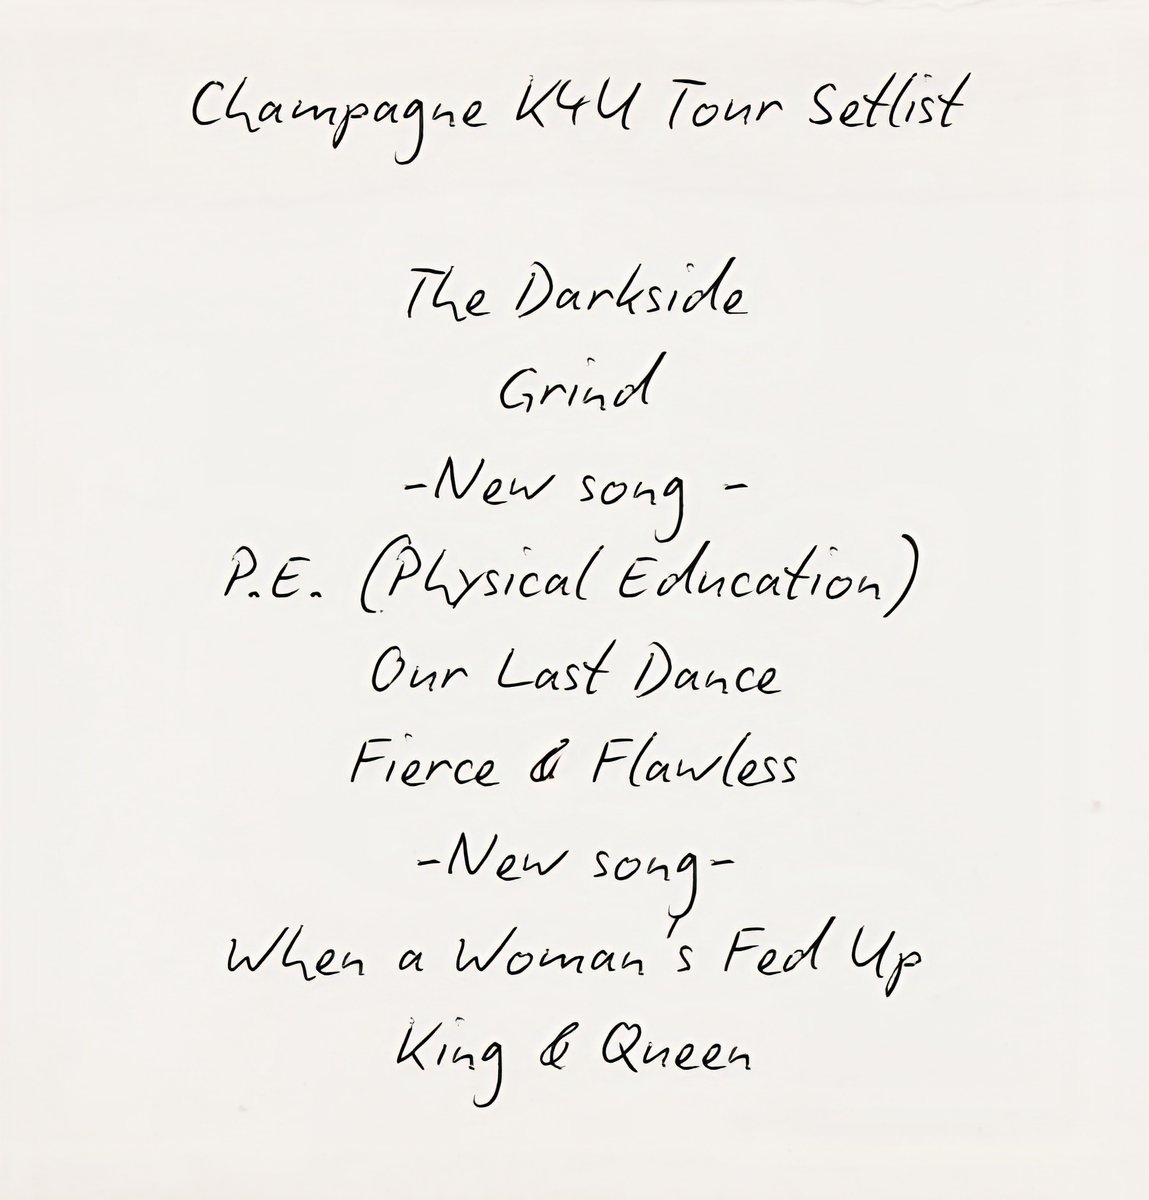 Champagne K4U Tour Setlist
The Darkside
Grind
-New song -
P.E. (Physical Education)
Our Last Dance
Fierce & Flawless
-New song-
When a Woman's Fed Up
King & Queen